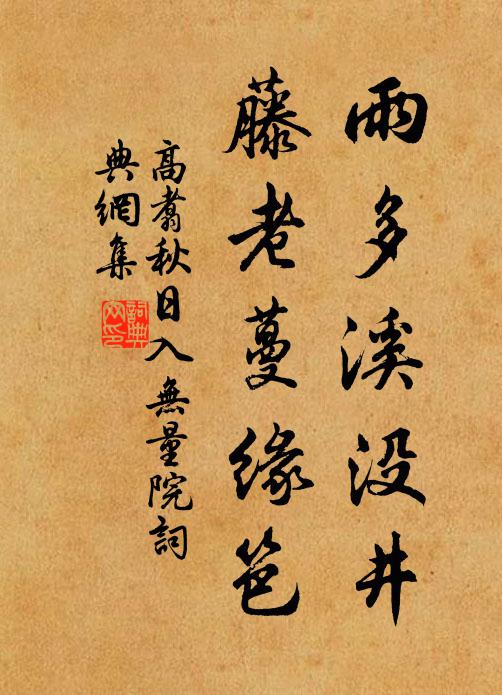 雨多溪没井
藤老蔓緣笆
高翥秋日入無量院詞
典網集
詞典
网印